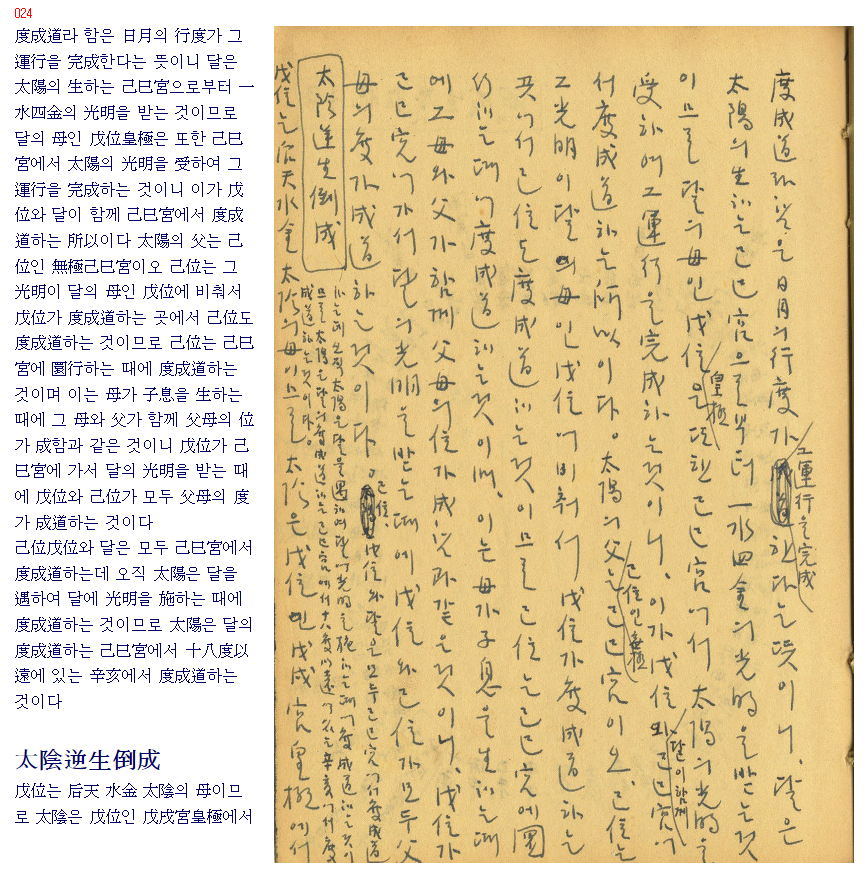 024
度成道라 함은 日月의 行度가 그
運行을 完成한다는 뜻이니 달은
太陽의 生하는 己巳宮으로부터 一
水四金의 光明을 받는 것이므로
달의 母인 戊位皇極은 또한 己巳
宮에서 太陽의 光明을 受하여 그
運行을 完成하는 것이니 이가 戊
位와 달이 함께 己巳宮에서 度成
道하는 所以이다 太陽의 父는 己
位인 無極己巳宮이오 己位는 그
光明이 달의 母인 戊位에 비춰서
戊位가 度成道하는 곳에서 己位도
度成道하는 것이므로 己位는 己巳
宮에 圜行하는 때에 度成道하는
것이며 이는 母가 子息을 生하는
때에 그 母와 父가 함께 父母의 位
가 成함과 같은 것이니 戊位가 己
巳宮에 가서 달의 光明을 받는 때
에 戊位와 己位가 모두 父母의 度
가 成道하는 것이다
己位戊位와 달은 모두 己巳宮에서
度成道하는데 오직 太陽은 달을
遇하여 달에 光明을 施하는 때에
度成道하는 것이므로 太陽은 달의
度成道하는 己巳宮에서 十八度以
遠에 있는 辛亥에서 度成道하는
것이다
太陰逆生倒成
戊位는 后天 水金 太陰의 母이므
로 太陰은 戊位인 戊戌宮皇極에서
度成道라 함은 日月의 行度가 그 運行을 完成한다는 뜻이니, 달은
太陽의 生하는 己巳宮으로부터 一水四金의 光明을 받는 것
이므로 달의 母인 戊位皇極은 또한 己巳宮에서 太陽의 光明을
受하여 그 運行을 完成하는 것이니, 이가 戊位와 달이 함께 己巳宮에
서 度成道하는 所以이다。太陽의 父는 己位인 無極己巳宮이오, 己位는
그 光明이 달의 母인 戊位에 비춰서 戊位가 度成道하는
곳에서 己位도 度成道하는 것이므로 己位는 己巳宮에 圜
行하는 때에 度成道하는 것이며, 이는 母가 子息을 生하는 때
에 그 母와 父가 함께 父母의 位가 成함과 같은 것이니, 戊位가
己巳宮에 가서 달의 光明을 받는 때에 戊位와 己位가 모두 父
母의 度가 成道하는 것이다。己位, 戊位와 달은 모두 己巳宮에서 度成道
하는데 오직 太陽은 달을 遇하여 달에 光明을 施하는 때에 度成道하는 것이
므로 太陽은 달의 度成道하는 己巳宮에서 十八度以遠에 있는 辛亥에서 度
成道하는 것이다。
太陰逆生倒成
戊位는 后天水金 太陰의 母이므로 太陰은 戊位인 戊戌宮皇極에서